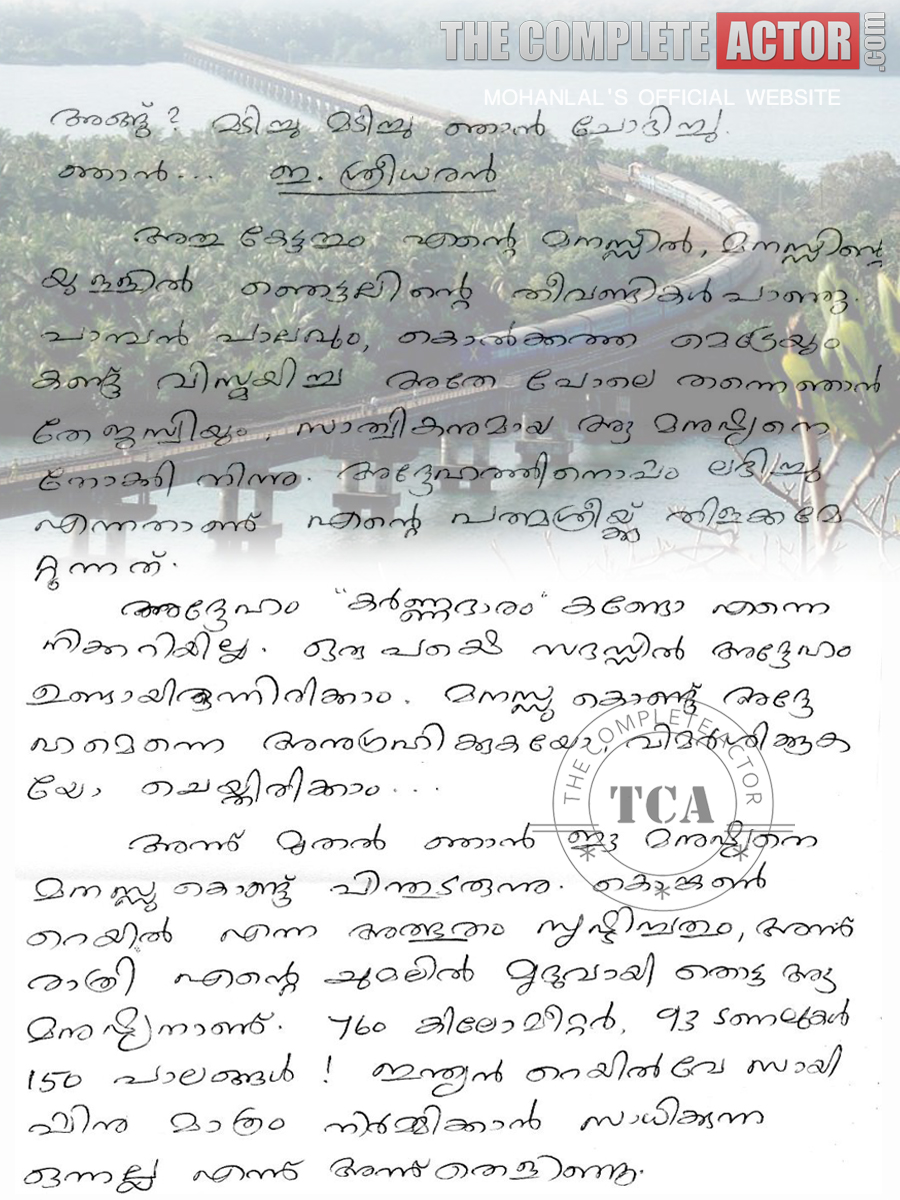 THE COMPLETE ACTOR.com
MOHANLAL'S OFFICIAL WEBSITE
അങ്ങ്? മടിച്ചു മടിച്ചു ഞാൻ ചോദിച്ചു.
ഞാൻ... ഇ. ശ്രീധരൻ
അതു കേട്ടതും എന്റെ മനസ്സിൽ, മനസ്സിന്റെ
യുള്ളിൽ ഞെട്ടലിന്റെ തീവണ്ടികൾ പാഞ്ഞു.
പാമ്പൻ പാലവും, കൊൽക്കത്ത മെട്രോയും
കണ്ട് വിസ്മയിച്ച അതേ പോലെ തന്നെ ഞാൻ
തേജസ്വിയും, സാത്വികനുമായ ആ മനുഷ്യനെ
നോക്കി നിന്നു. അദ്ദേഹത്തിനൊപ്പം ലഭിച്ചു
എന്നതാണ് എന്റെ പത്മശ്രീയ്ക്ക് തിളക്കമേ
റ്റുന്നത്.
അദ്ദേഹം "കർണ്ണഭാരം" കണ്ടോ എന്നെ
നിക്കറിയില്ല. ഒരു പക്ഷെ സദസ്സിൽ അദ്ദേഹം
ഉണ്ടായിരുന്നിരിക്കാം. മനസ്സു കൊണ്ട് അദ്ദേ
ഹമെന്നെ അനുഗ്രഹിക്കുകയോ, വിമർശിക്കുക
യോ ചെയ്തിരിക്കാം...
അന്ന് മുതൽ ഞാൻ ഈ മനുഷ്യനെ
മനസ്സു കൊണ്ട് പിന്തുടരുന്നു. കൊങ്കൺ
റെയിൽ എന്ന അത്ഭുതം സൃഷ്ടിച്ചതും, അന്ന്
രാത്രി എന്റെ ചുമലിൽ മൃദുവായി തൊട്ട ആ
മനുഷ്യനാണ്. 760 കിലോമീറ്റർ, 93 ടണലുകൾ
150 പാലങ്ങൾ! ഇന്ത്യൻ റെയിൽവേ സായി
പ്പിനു മാത്രം നിർമ്മിക്കാൻ സാധിക്കുന്ന
ഒന്നല്ല എന്ന് അന്ന് തെളിഞ്ഞു.
THE COMPLETE ACTOR
TCA